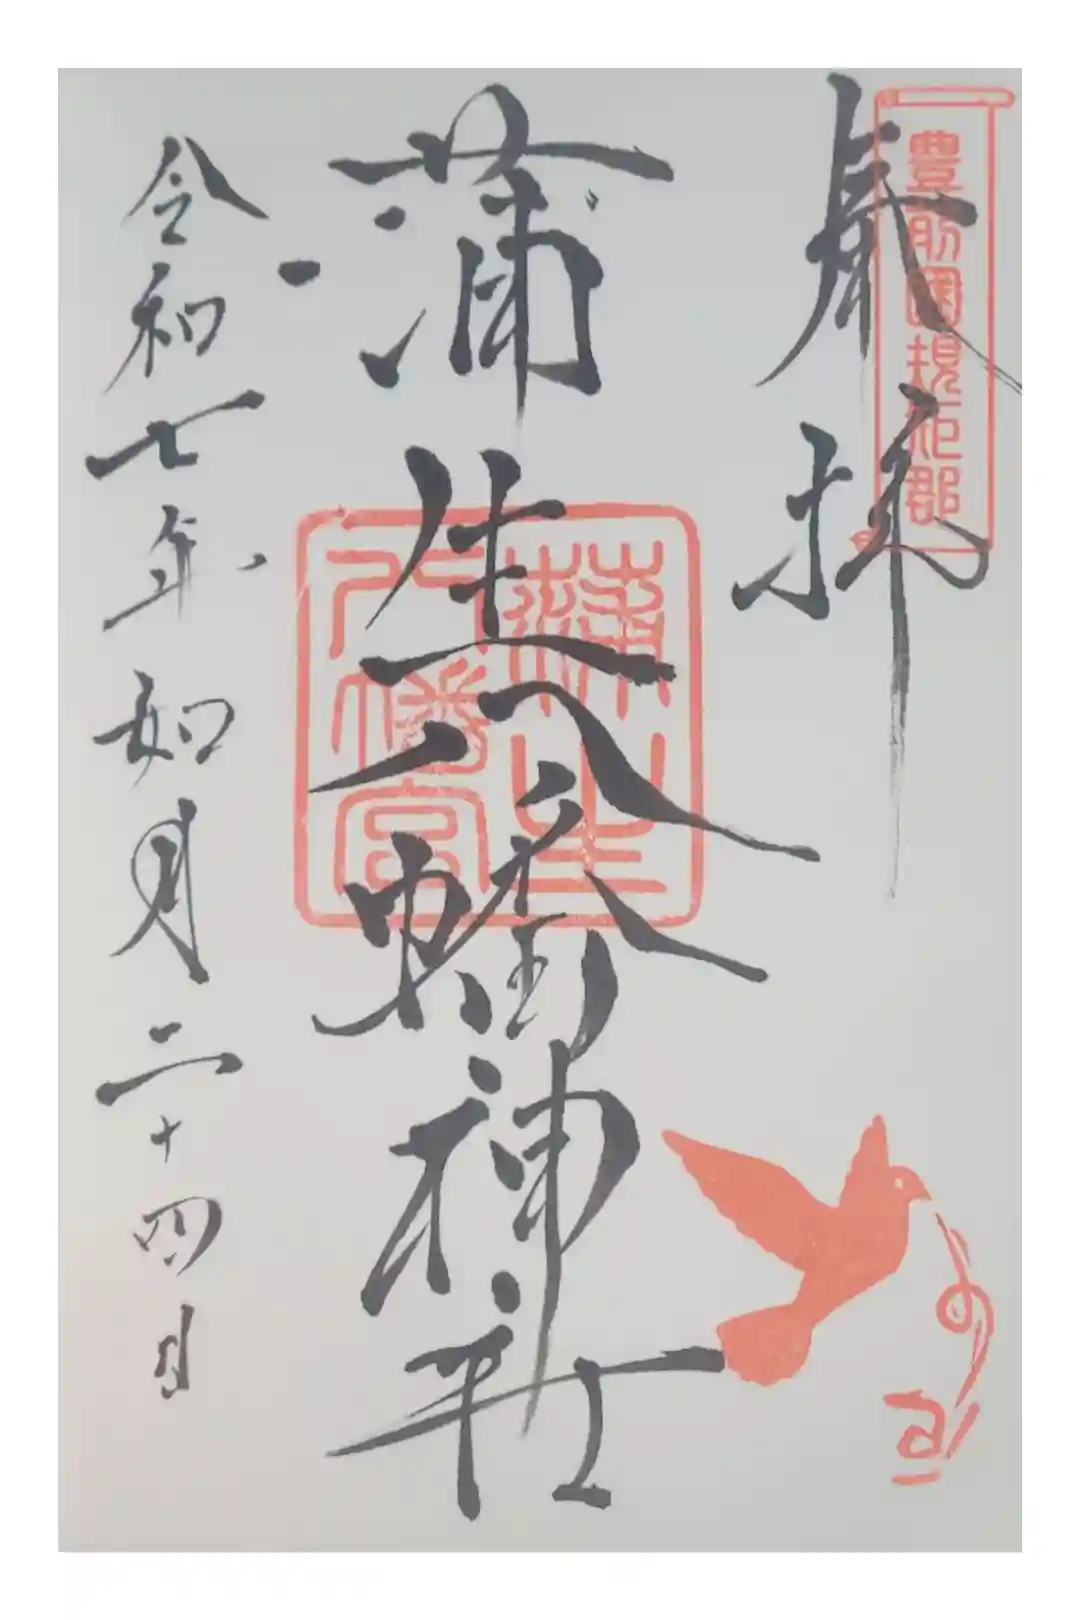 奉拝
豊前國規矩郡
蒲生八幡神社
蒲生
八幡宮
令和七年如月二十四日